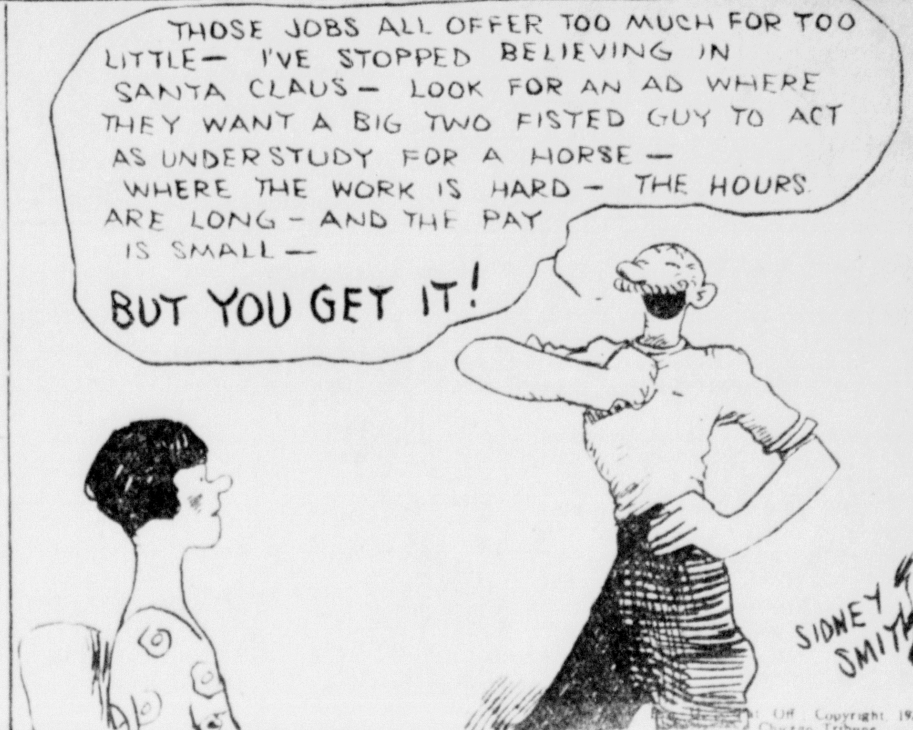 THOSE JOBS ALL OFFER TOO MUCH FOR TOO
LITTLE— I'VE STOPPED BELIEVING IN
SANTA CLAUS — LOOK FOR AN AD WHERE
THEY WANT A BIG TWO FISTED GUY TO ACT
AS UNDERSTUDY FOR A HORSE —
WHERE THE WORK IS HARD — THE HOURS
ARE LONG — AND THE PAY
IS SMALL —
BUT YOU GET IT!
SIDNEY
SMITH
Off Copyright 19
Chicago Tribune